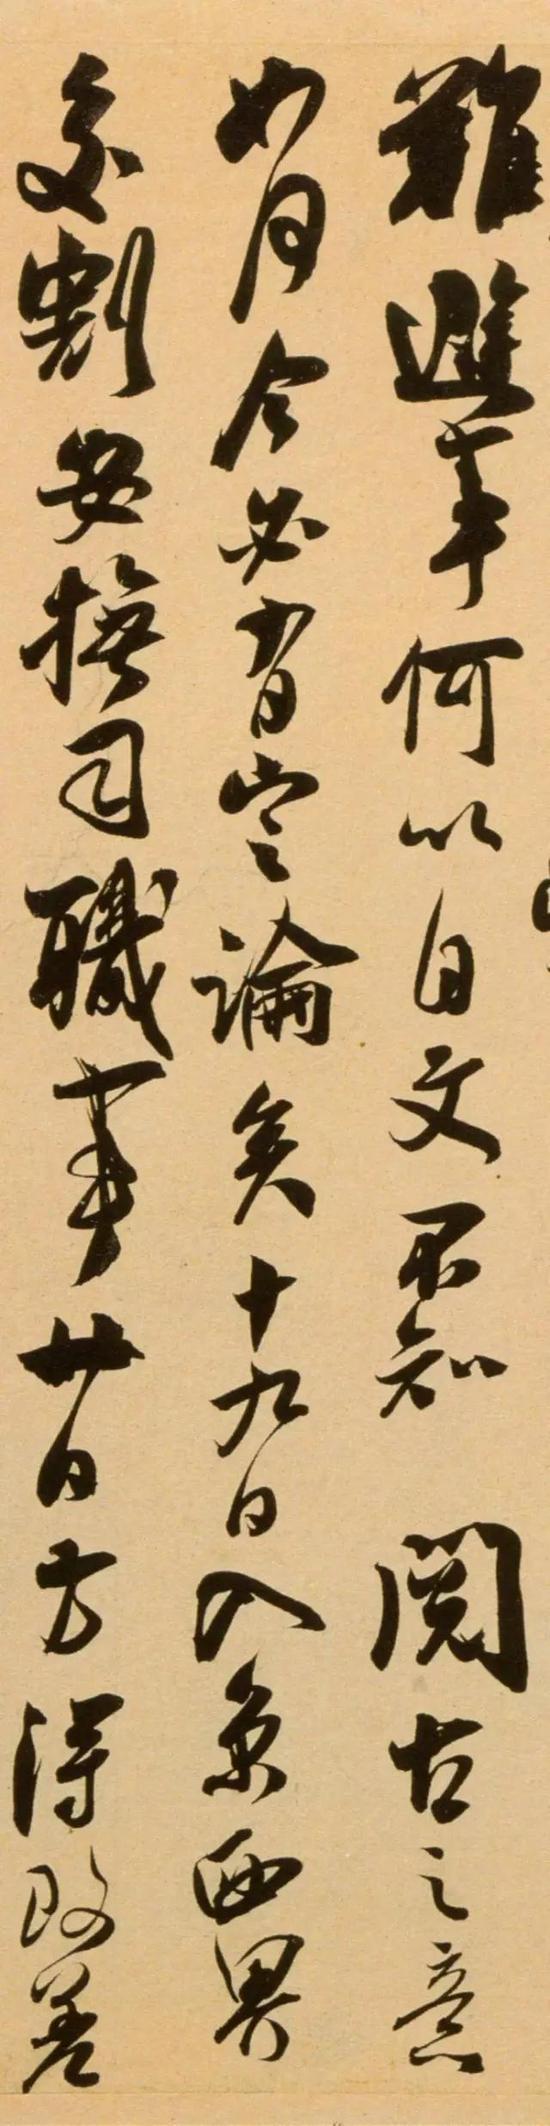 難避事何以自文不知 閱古之意
如何今必有定論矣十九日入京西界
交割安撫司職事廿日方得改差